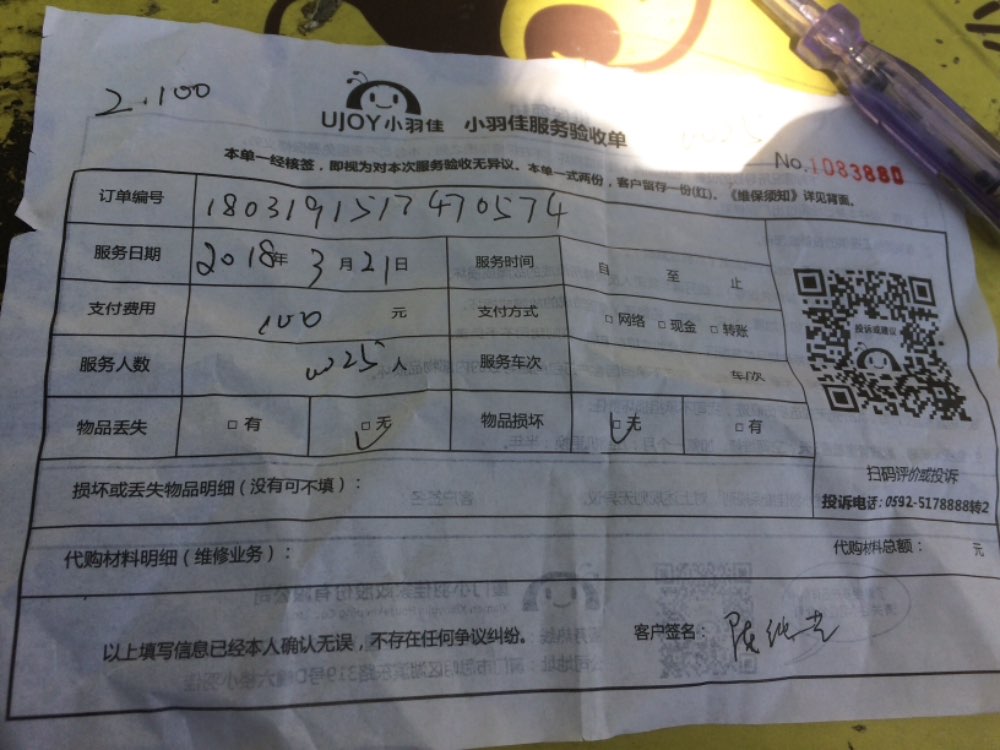 2.100
UJOY小羽佳 小羽佳服务验收单
No.1083880
本单一经核签，即视为对本次服务验收无异议。本单一式两份，客户留存一份(红)。《维保须知》详见背面。
订单编号 18031915174 70574
服务日期 2018年 3月21日 服务时间 自 至 止
支付费用 100 元 支付方式 □ 网络 □ 现金 □ 转账
服务人数 25 人 服务车次 车/次
物品丢失 □ 有 □ 无 物品损坏 □ 无 □ 有
投诉或建议
扫码评价或投诉
投诉电话：0592-5178888转2
损坏或丢失物品明细（没有可不填）：
代购材料明细（维修业务）： 代购材料总额： 元
以上填写信息已经本人确认无误，不存在任何争议纠纷。 客户签名：